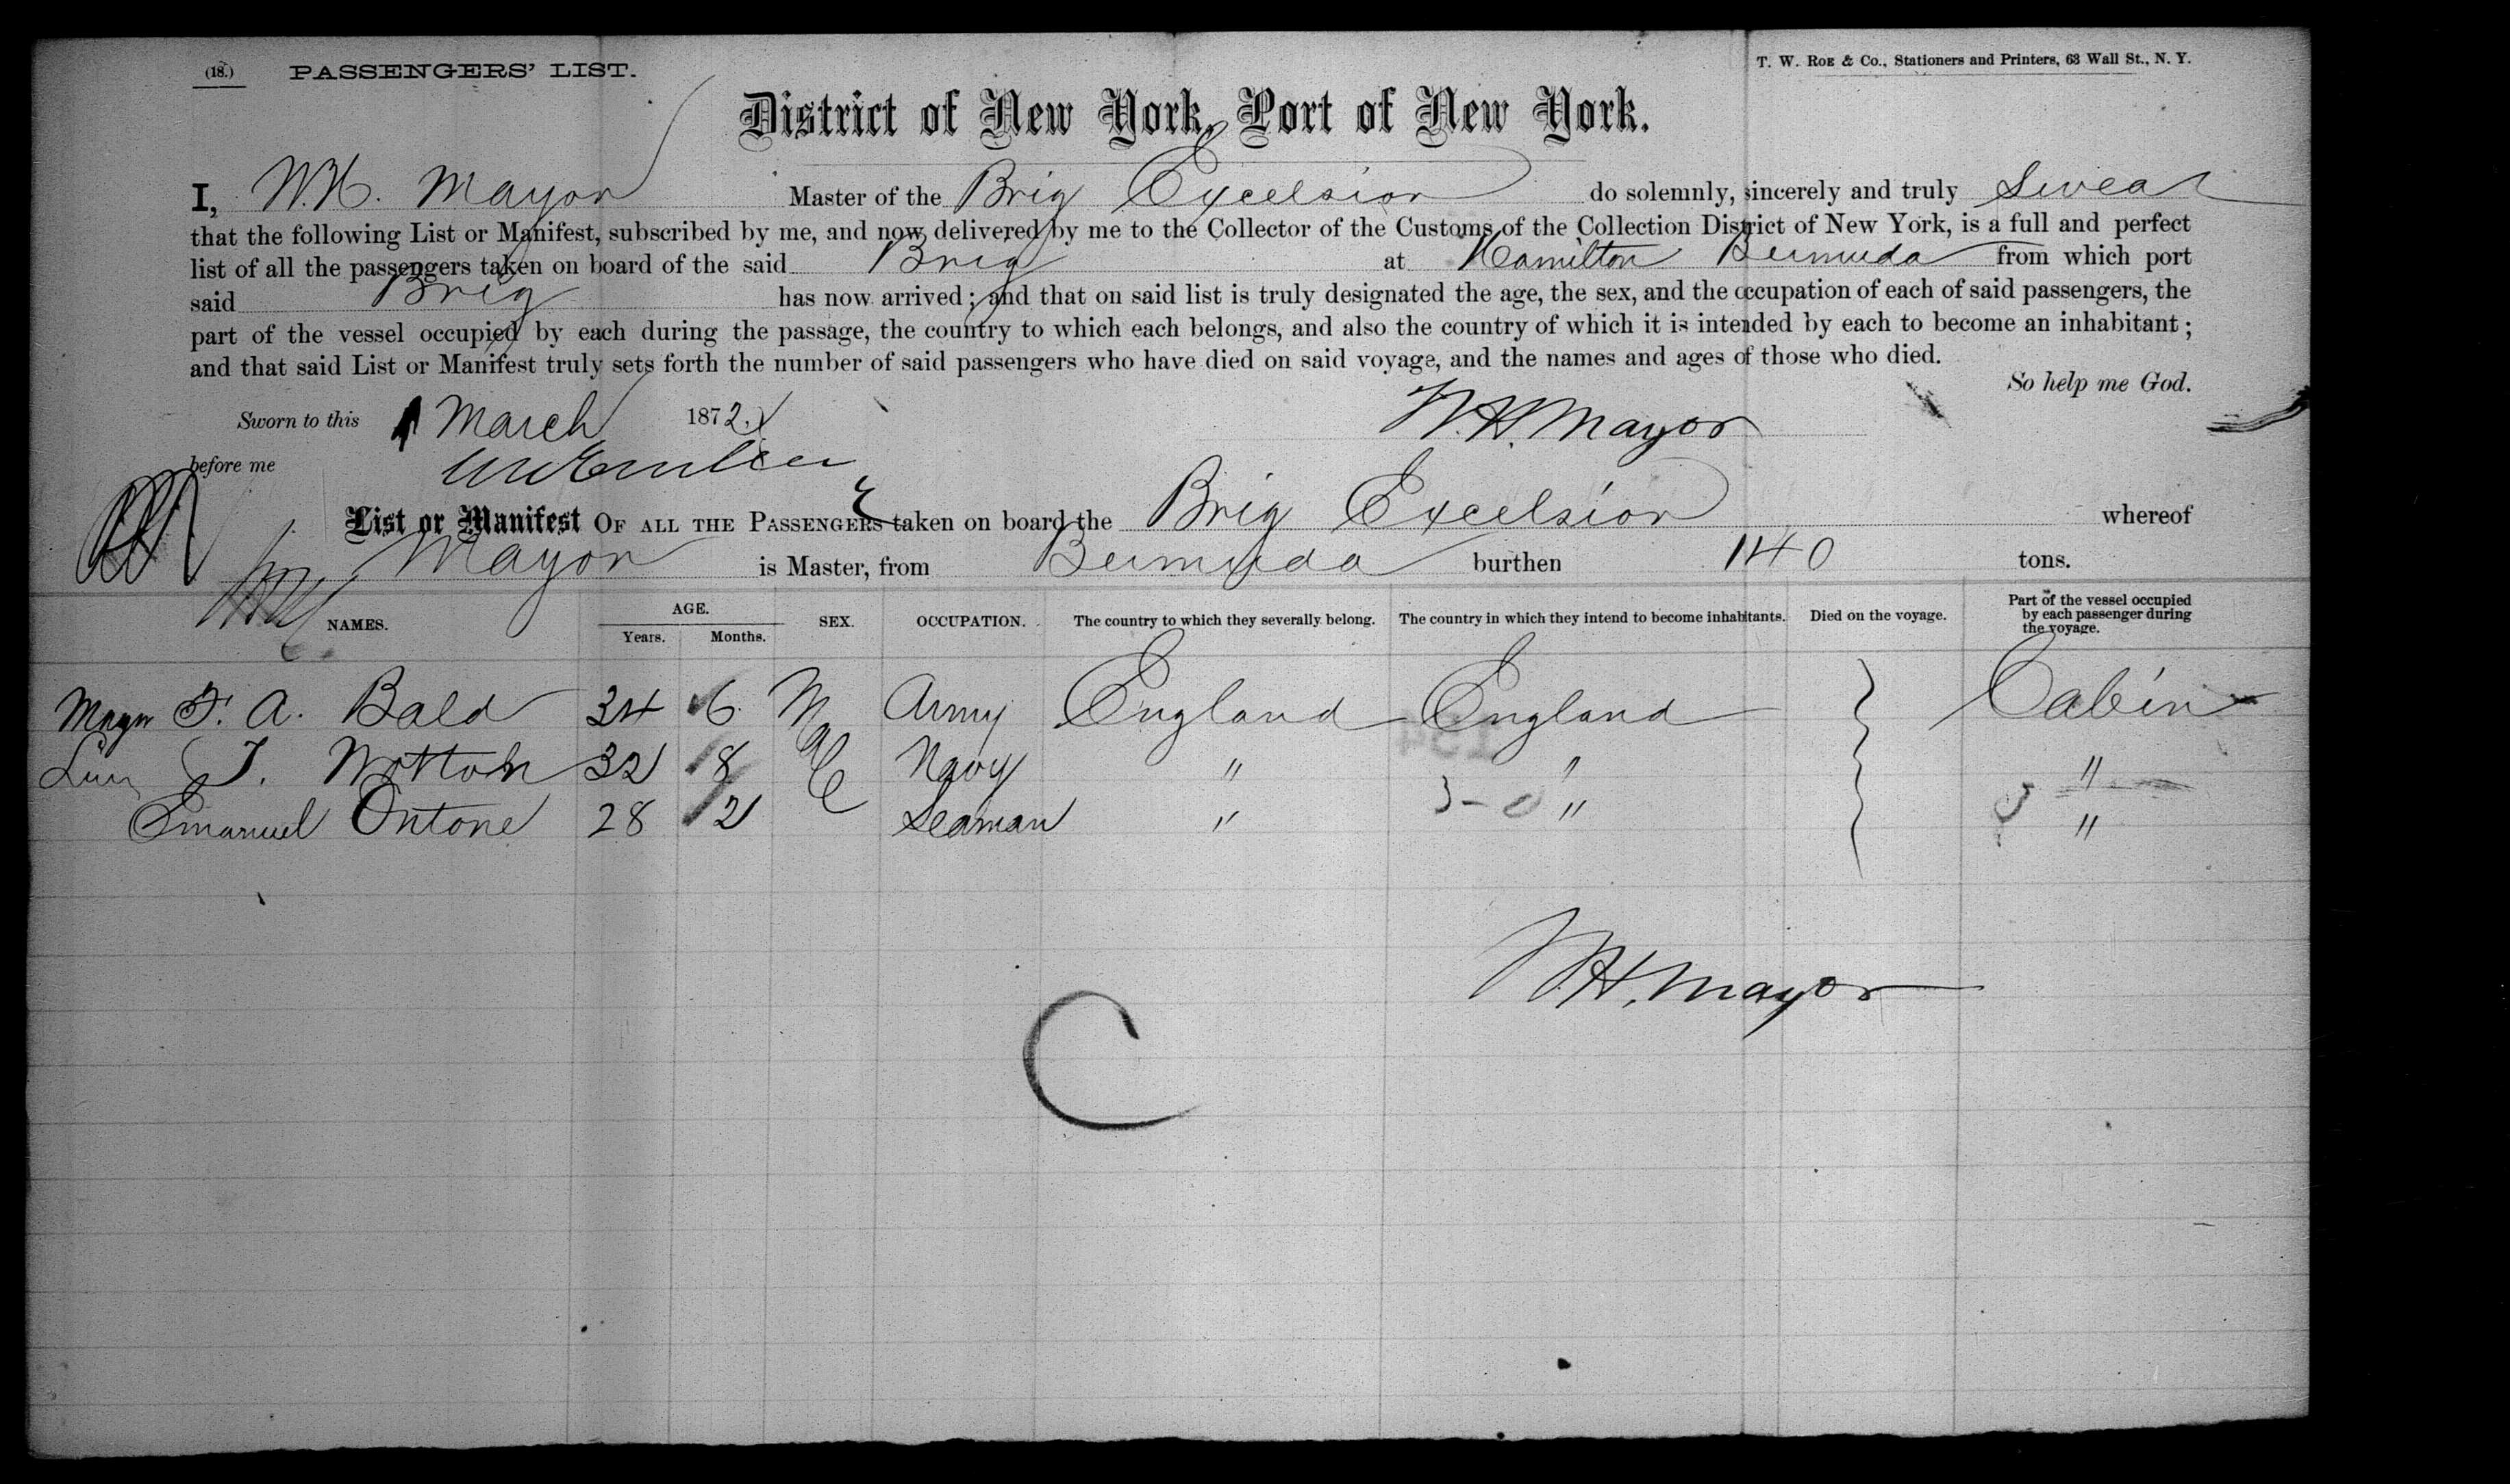 (18.) PASSENGERS' LIST.
T. W. Roe & Co., Stationers and Printers, 63 Wall St., N. Y.
District of New York, Port of New York.
I, W. H. Mayor Master of the Brig Excelsior do solemnly, sincerely and truly Swear
that the following List or Manifest, subscribed by me, and now delivered by me to the Collector of the Customs of the Collection District of New York, is a full and perfect
list of all the passengers taken on board of the said Brig at Hamilton Bermuda from which port
said Brig has now arrived; and that on said list is truly designated the age, the sex, and the occupation of each of said passengers, the
part of the vessel occupied by each during the passage, the country to which each belongs, and also the country of which it is intended by each to become an inhabitant;
and that said List or Manifest truly sets forth the number of said passengers who have died on said voyage, and the names and ages of those who died.
So help me God.
Sworn to this 1 March 1872.
W. H. Mayor
before me
List or Manifest OF ALL THE PASSENGERS taken on board the Brig Excelsior whereof
Mayor is Master, from Bermuda burthen 140 tons.
NAMES. AGE. Years. Months. SEX. OCCUPATION. The country to which they severally belong. The country in which they intend to become inhabitants. Died on the voyage. Part of the vessel occupied by each passenger during the voyage.
Mayor F. A. Bald 34 6 Male Army England England Cabin
T. Wotton 32 8 Navy " " "
Emanuel Ontone 28 2 Seaman " " "
W. H. Mayor
C